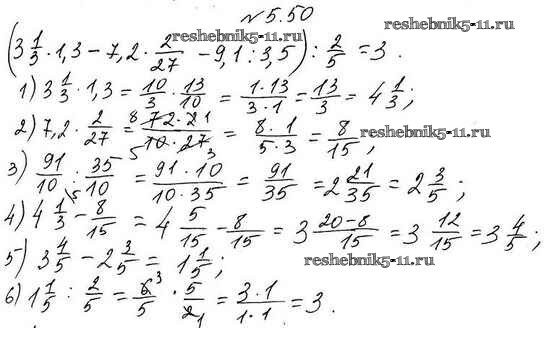 № 5.50
reshebnik5-11.ru
reshebnik5-11.ru
(3 1/3 · 1,3 − 7,2 · 2/27 − 9,1 : 3,5) : 2/5 = 3.
1) 3 1/3 · 1,3 = 10/3 · 13/10 = 1·13/3·1 = 13/3 = 4 1/3;
2) 7,2 · 2/27 = 8 72·2 1/5 10·27 3 = 8·1/5·3 = 8/15,
reshebnik5-11.ru
3) 91/10 : 35/10 = 91·10/10·35 = 91/35 = 2 21/35 = 2 3/5;
4) 4 1/3 \5 − 8/15 = 4 5/15 − 8/15 = 3 20−8/15 = 3 12/15 = 3 4/5;
5) 3 4/5 − 2 3/5 = 1 1/5;
reshebnik5-11.ru
6) 1 1/5 : 2/5 = 6 3/5 · 5/2 1 = 3·1/1·1 = 3.